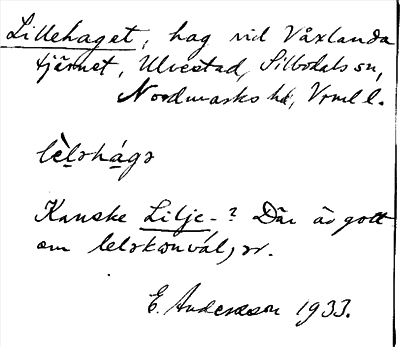 Lillehaget, hag vid Våxlanda
tjärnet, Ulvestad, Silbodals sn,
Nordmarks hd, Vrml l.
lèlshágs
Kanske Lilje-? Där är gott
om
E. Andersson 1933.